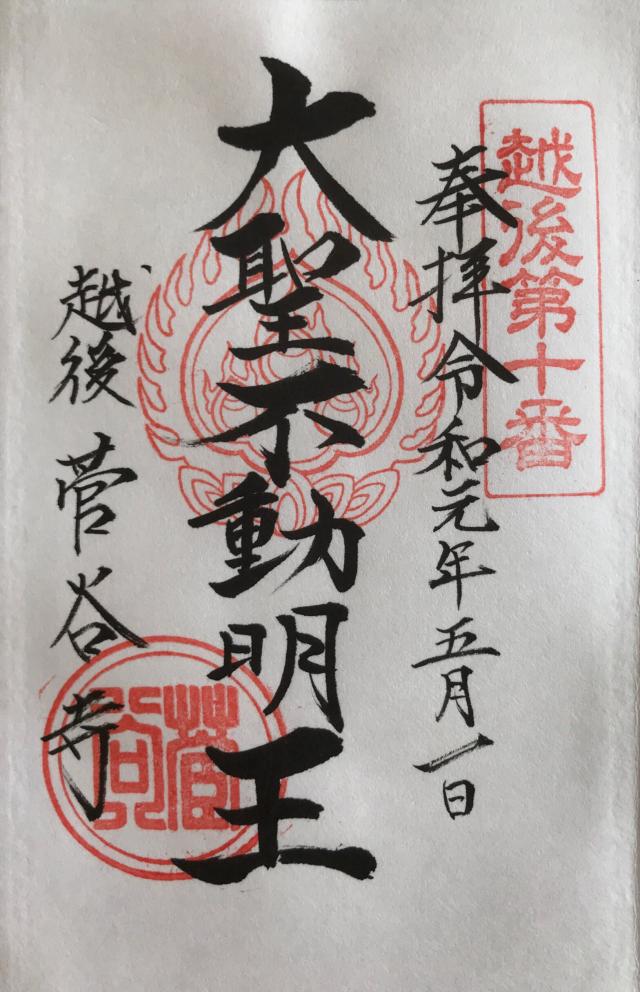 越後第十番
奉拝令和元年五月一日
大聖不動明王
越後 菅谷寺